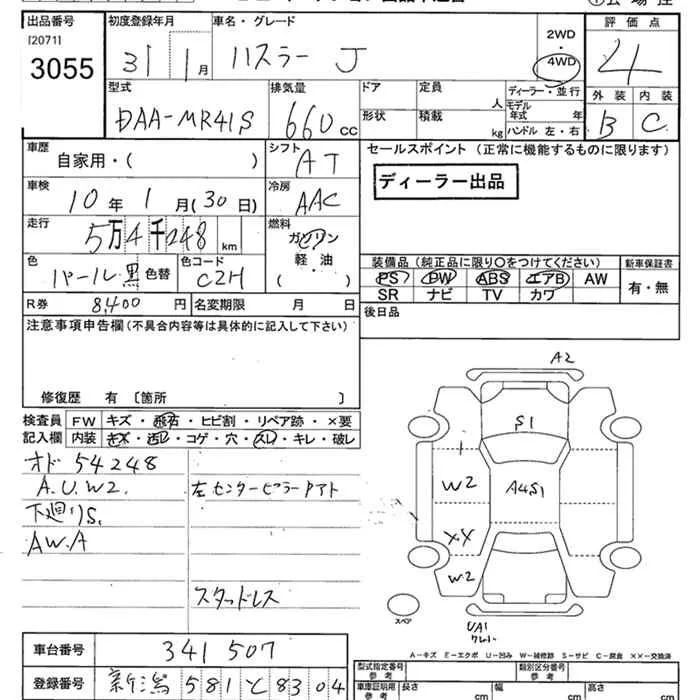 出品番号
[2071]
3055
初度登録年月
31 1月
車名・グレード
ハスラー J
2WD
・
4WD
評価点
4
外装 内装
B C
型式
DAA-MR41S
排気量
660 CC
ドア
定員
人
形状
積載
kg
ディーラー・並行
モデル
年式 年
ハンドル 左・右
車歴
自家用・( )
シフト
AT
セールスポイント (正常に機能するものに限ります)
ディーラー出品
車検
10年 1月(30日)
冷房
AAC
走行
5万4千248 km
燃料
ガソリン
軽・油
( )
色
パール黒 色替
色コード
C2H
装備品 (純正品に限り○をつけてください)
PS PW ABS エアB AW
SR ナビ TV カワ
新車保証書
有・無
R券 8,400 円
名変期限 月 日
後日品
注意事項申告欄 (不具合内容等は具体的に記入して下さい)
修復歴 有 〔箇所 〕
検査員
記入欄
FW キズ・飛石・ヒビ割・リペア跡・×要
内装 キズ・汚レ・コゲ・穴・スレ・キレ・破レ
オド 54248
A.U.W2.
下廻りS.
AW.A
左センターピラーアト
スタッドレス
A2
S1
W2
A4S1
XX
W2
UA1
スペア
A-キズ E-エクボ U-凹み W-補修跡 S-サビ C-腐食 ××-交換済
車台番号
341507
登録番号
新潟 581 と 8304
型式指定番号
参考
類別区分番号
参考
車庫証明用
参考
長さ cm
幅 cm
高さ cm